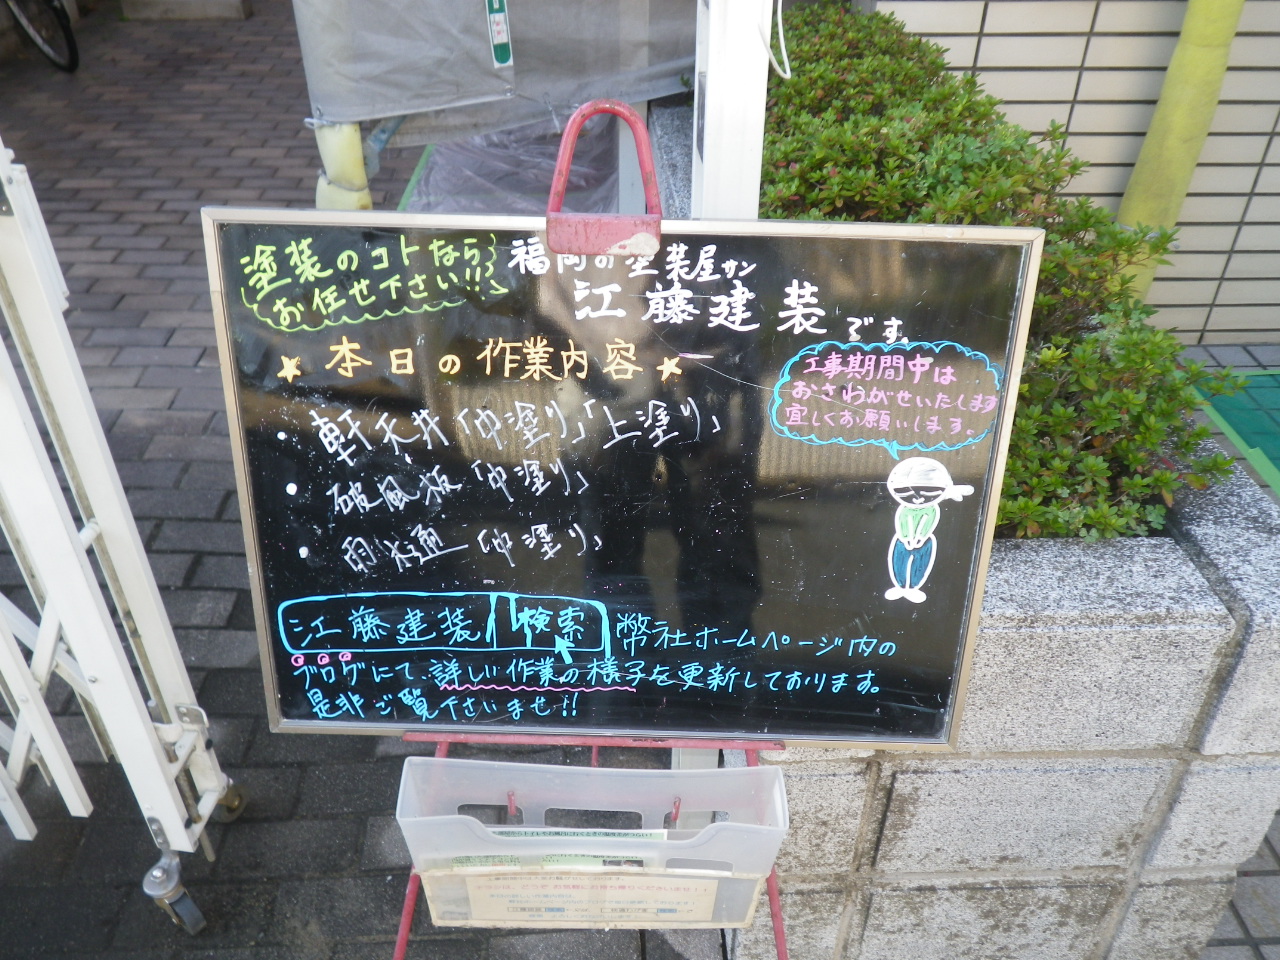 塗装のコトなら
お任せ下さい!!
福岡の塗装屋サン
江藤建装です。
★本日の作業内容★
工事期間中は
おさわがせいたします
宜しくお願いします。
・軒天井「中塗り」「上塗り」
・破風板「中塗り」
・雨水通「中塗り」
江藤建装 検索 幣社ホームページ内の
ブログにて詳しい作業の様子を更新しております。
是非ご覧下さいませ!!